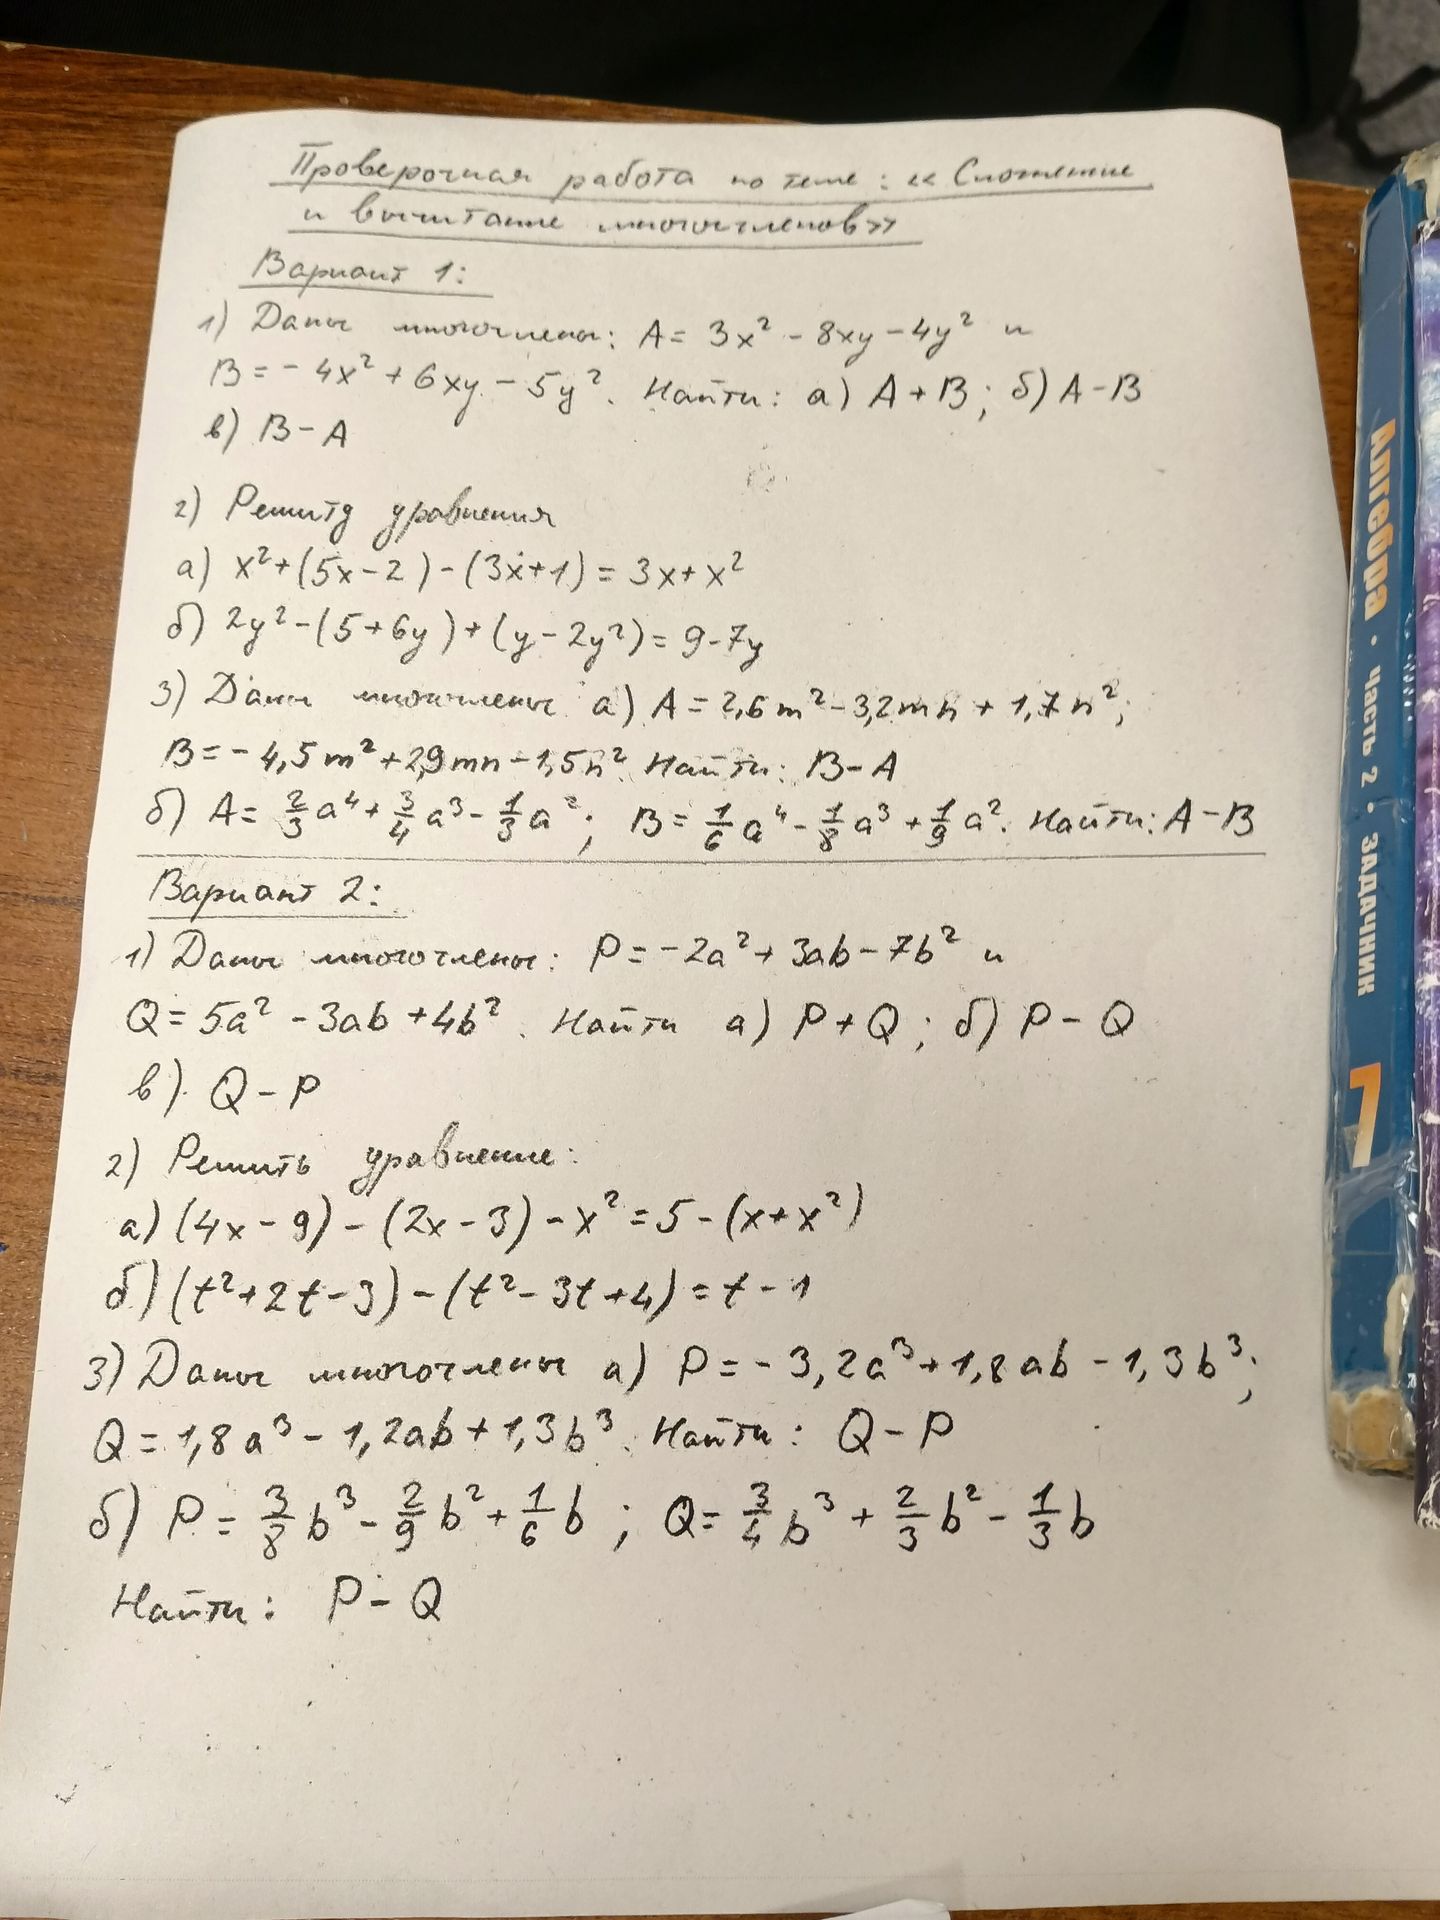 Проверочная работа по теме: «Сложение
и вычитание многочленов»
Вариант 1:
1) Даны многочлены: A = 3x² - 8xy - 4y² и
B = - 4x² + 6xy - 5y². Найти: а) A + B; б) A - B
в) B - A
2) Решитд уравнения
а) x² + (5x - 2) - (3x + 1) = 3x + x²
б) 2y² - (5 + 6y) + (y - 2y²) = 9 - 7y
3) Даны многочлены а) A = 2,6m² - 3,2mn + 1,7n²;
B = - 4,5m² + 2,9mn - 1,5n². Найти: B - A
б) A = 2/3 a⁴ + 3/4 a³ - 1/3 a²; B = 1/6 a⁴ - 1/8 a³ + 1/9 a². Найти: A - B
Вариант 2:
1) Даны многочлены: P = - 2a² + 3ab - 7b² и
Q = 5a² - 3ab + 4b². Найти а) P + Q; б) P - Q
в) Q - P
2) Решить уравнение:
а) (4x - 9) - (2x - 3) - x² = 5 - (x + x²)
б) (t² + 2t - 3) - (t² - 3t + 4) = t - 1
3) Даны многочлены а) P = - 3,2a³ + 1,8ab - 1,3b³;
Q = 1,8a³ - 1,2ab + 1,3b³. Найти: Q - P
б) P = 3/8 b³ - 2/9 b² + 1/6 b; Q = 3/4 b³ + 2/3 b² - 1/3 b
Найти: P - Q
Алгебра · часть 2 · ЗАДАЧНИК 7